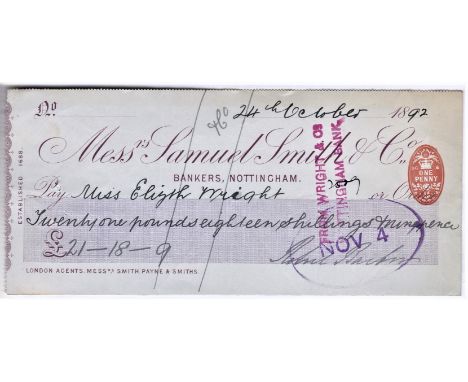 No 24th October 1892
Messrs Samuel Smith & Co.
BANKERS, NOTTINGHAM.
ESTABLISHED 1688
Pay Miss Elizth Wright or Or
ONE PENNY
Twenty one pounds eighteen shillings & ninepence
£21-18-9
FROM WRIGHT & CO
NOTTINGHAM BANK
NOV 4
LONDON AGENTS, MESSRS SMITH PAYNE & SMITHS.